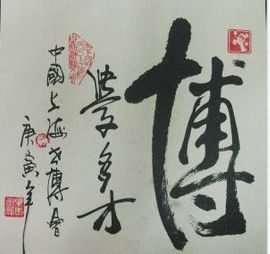 博
学多才
中國上海世博會
庚寅年